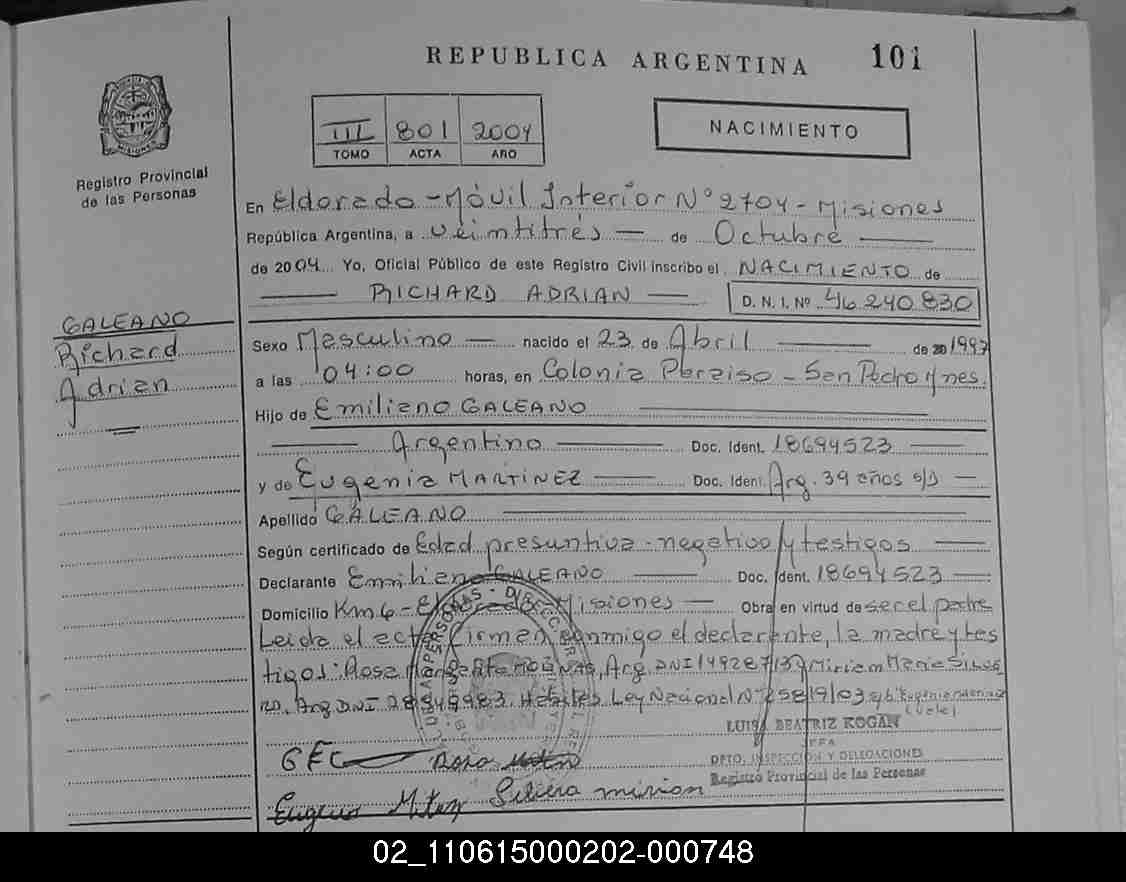 REPUBLICA ARGENTINA 101
III 801 2004
TOMO ACTA AÑO
NACIMIENTO
Registro Provincial
de las Personas
En Eldorado - Móvil Interior Nº 2704 - Misiones
República Argentina, a veintitrés — de Octubre —
de 2004 Yo, Oficial Público de este Registro Civil inscribo el NACIMIENTO de
— RICHARD ADRIAN — D. N. I. Nº 46.240.830
GALEANO
Richard
Adrian
Sexo Masculino — nacido el 23 de Abril — de 20 1997
a las 04:00 horas, en Colonia Paraiso - San Pedro Mnes.
Hijo de Emiliano GALEANO —
— Argentino — Doc. Ident. 18694523 —
y de Eugenia MARTINEZ — Doc. Ident. Arg. 39 años s/d —
Apellido GALEANO —
Según certificado de Edad presuntiva - negativo y testigos —
Declarante Emiliano GALEANO — Doc. Ident. 18694523 —
Domicilio Km 6 - Misiones — Obra en virtud de ser el padre
Leida el acta firman conmigo el declarante, la madre y tes
tigos: Rosa Arg. DNI Miriam
Arg DNI Ley Nacional Nº 25819/03
LUISA BEATRIZ KOGAN
JEFA
DPTO. INSPECCIÓN Y DELEGACIONES
Registro Provincial de las Personas
GEC Rosa
Silvera mirian
02_110615000202-000748